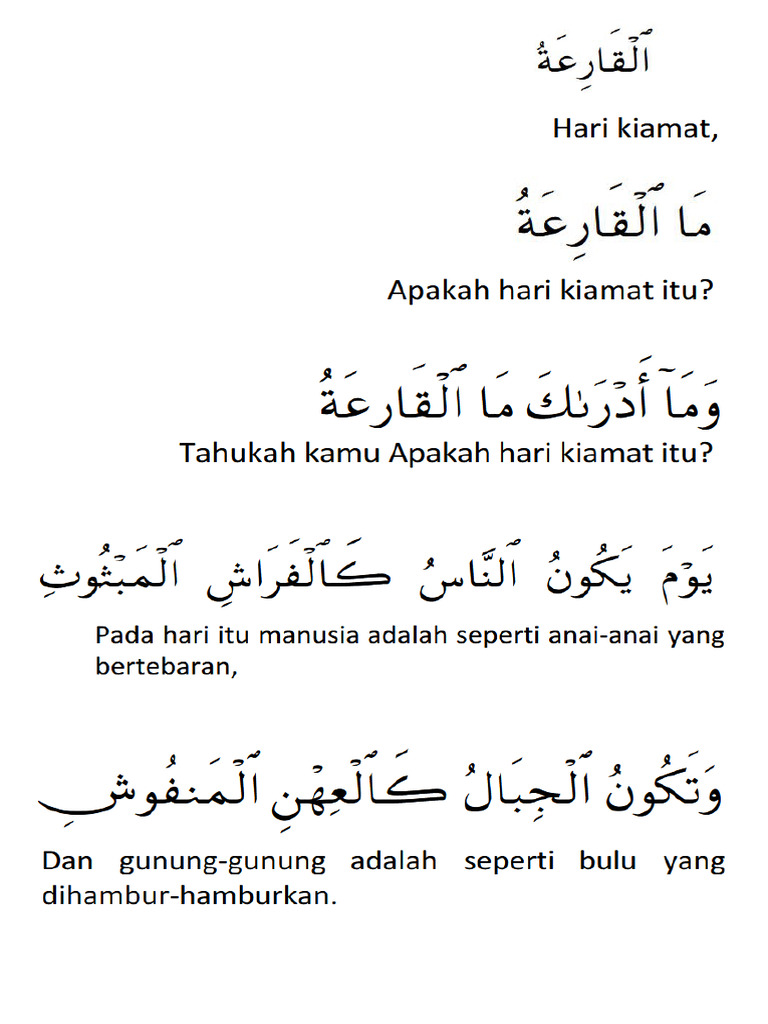 ٱلۡقَارِعَةُ
Hari kiamat,
مَا ٱلۡقَارِعَةُ
Apakah hari kiamat itu?
وَمَآ أَدۡرَىٰكَ مَا ٱلۡقَارعَةُ
Tahukah kamu Apakah hari kiamat itu?
يَوۡمَ يَكُونُ ٱلنَّاسُ كَٱلۡفَرَاشِ ٱلۡمَبۡثُوثِ
Pada hari itu manusia adalah seperti anai-anai yang
bertebaran,
وَتَكُونُ ٱلۡجِبَالُ كَٱلۡعِهۡنِ ٱلۡمَنفُوشِ
Dan gunung-gunung adalah seperti bulu yang
dihambur-hamburkan.